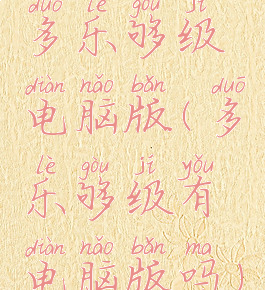 duō lè gòu jí
多乐够级
diàn nǎo bǎn duō
电脑版(多
lè gòu jí yǒu
乐够级有
diàn nǎo bǎn ma
电脑版吗)